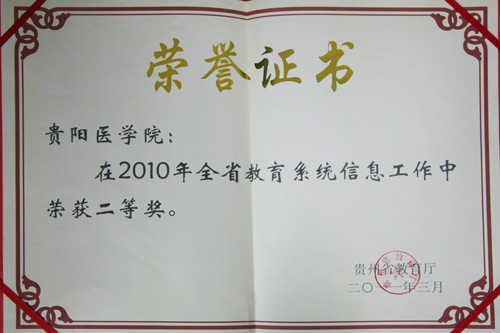 荣誉证书
贵阳医学院：
在2010年全省教育系统信息工作中
荣获二等奖。
贵州省教育厅
二〇一一年三月